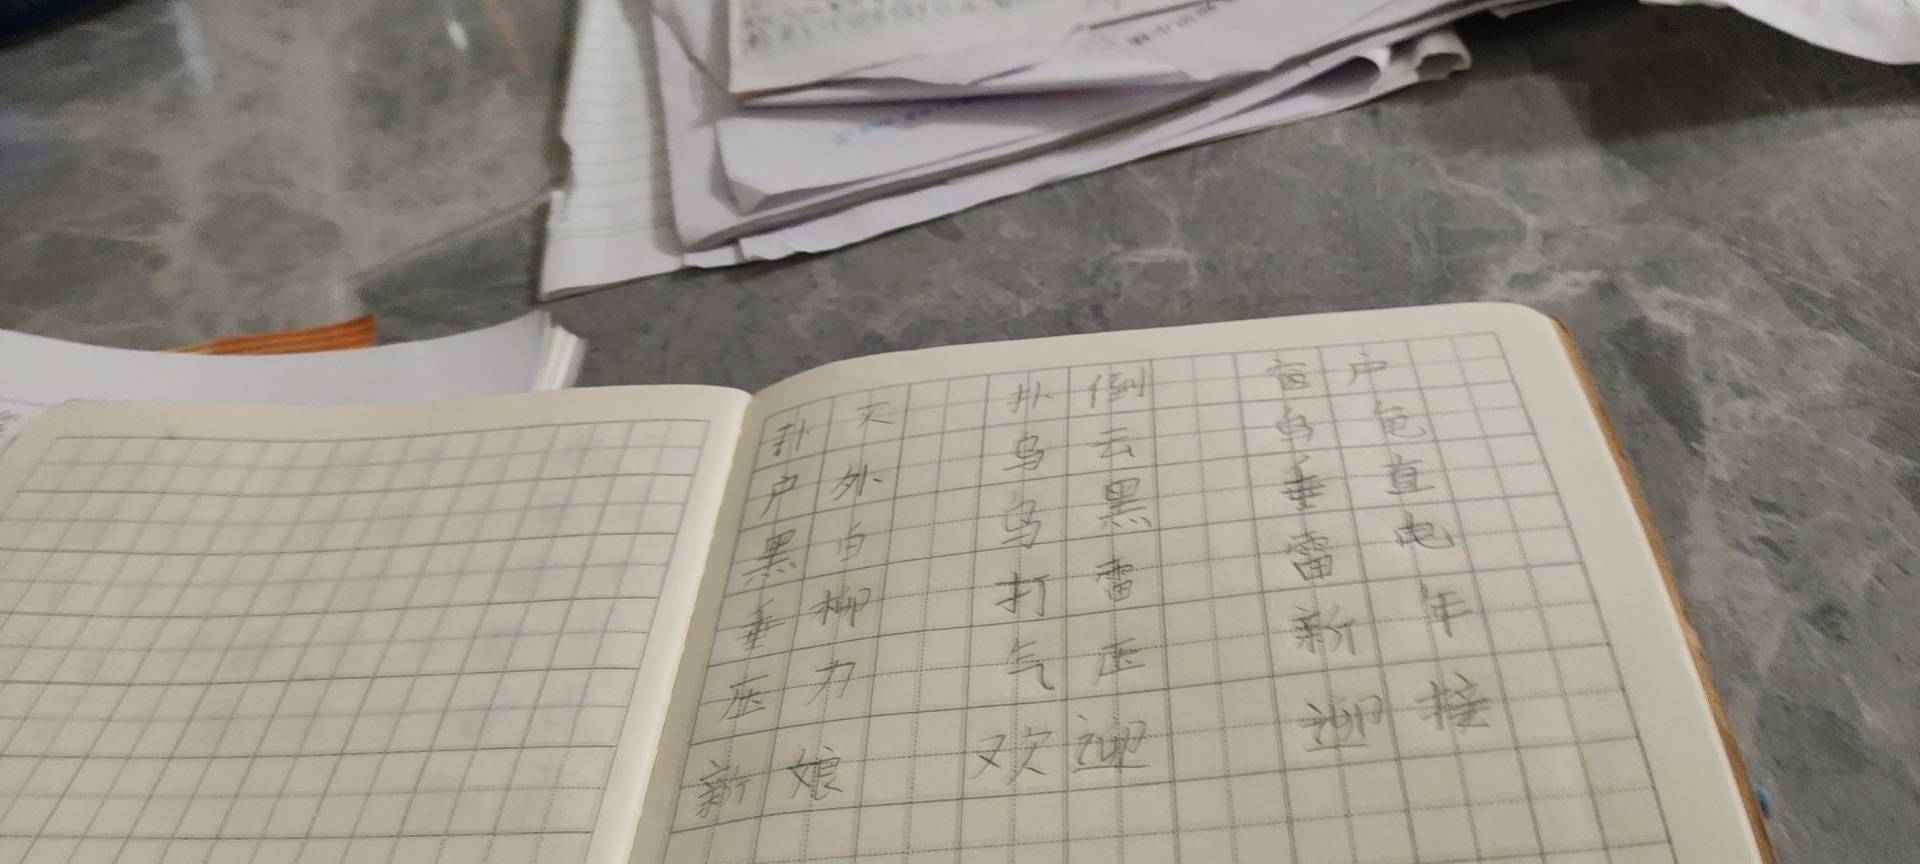 扑灭 扑倒 窗户
户外 乌云 乌龟
黑白 乌黑 垂直
垂柳 打雷 雷电
压力 气压 新年
新娘 欢迎 迎接